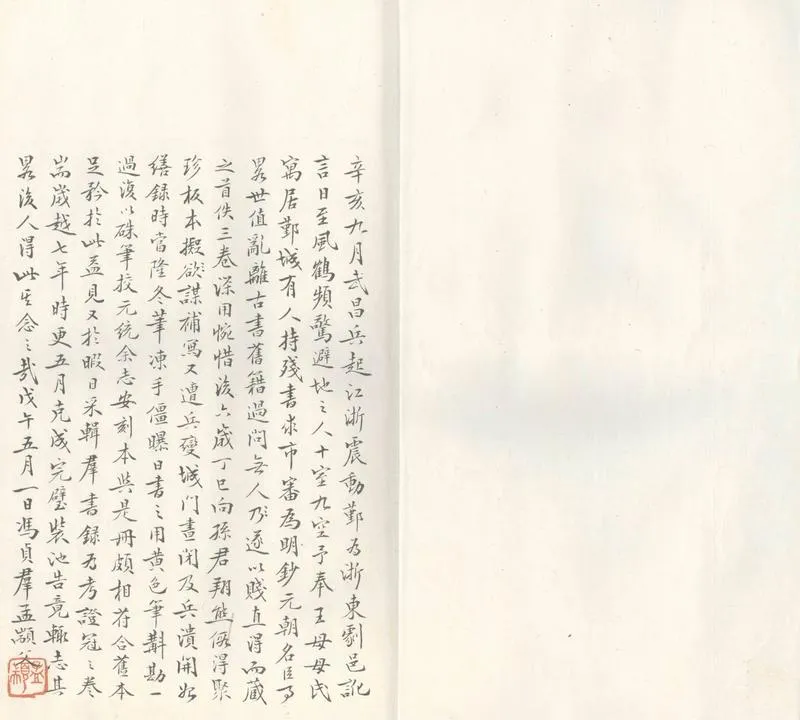 辛亥九月武昌兵起江浙震動鄞為浙東劇邑訛
言日至風鶴頻驚避地之人十室九空予奉王母母氏
寓居鄞城有人持殘書求市審為明鈔元朝名臣事
畧世值亂離古書舊籍過問無人乃遂以賤直得而藏
之首佚三卷深用惋惜後六歲丁巳向孫君翔熊假得聚
珍板本擬欲謀補寫又遭兵變城門晝閉及兵潰開始
繕錄時當隆冬筆凍手僵曝日書之用黃色筆斠勘一
過復以硃筆挍元統余志安刻本與是冊頗相符合舊本
足矜於此益見又於暇日采輯群書錄為考證冠之卷
耑歲越七年時更五月克成完璧裝池告竟輒志其
畧後人得此其念之哉戊午五月一日馮貞群孟顓父